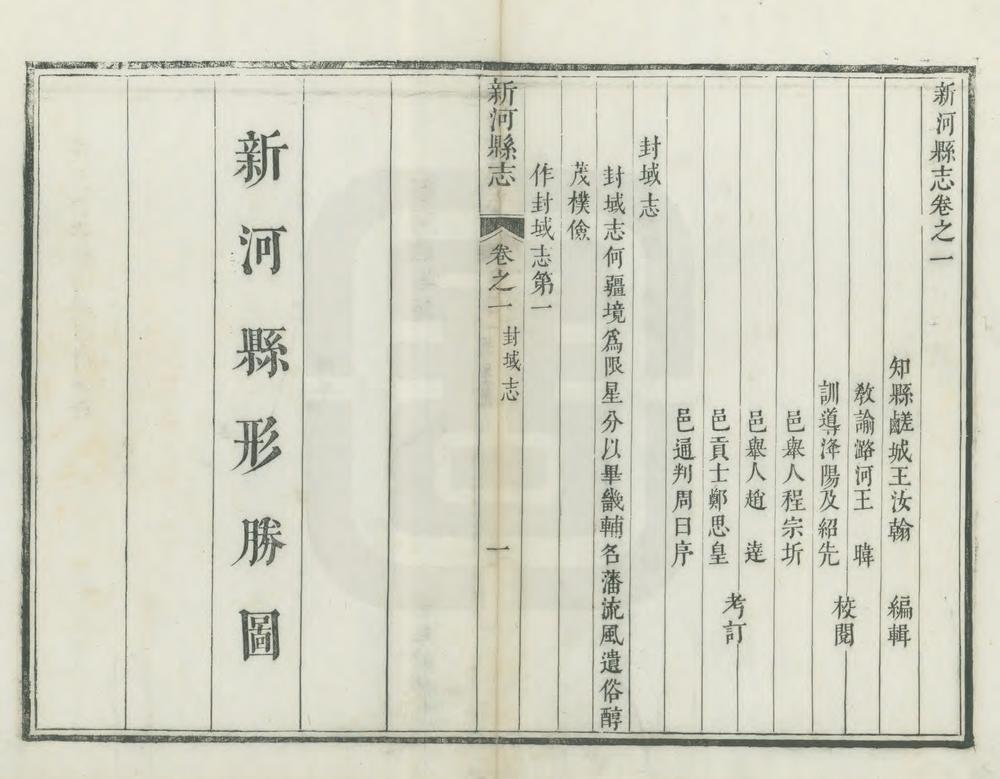 新河縣志卷之一
知縣鹺城王汝翰　編輯
教諭潞河王　暐
訓導洚陽及紹先　校閱
邑舉人程宗圻
邑舉人趙　逹
邑貢士鄭思皇　考訂
邑通判周日序
封域志
封域志何疆境爲限星分以畢畿輔名藩流風遺俗醇
茂樸儉
作封域志第一
新河縣志　卷之一　封域志　一
新河縣形勝圖